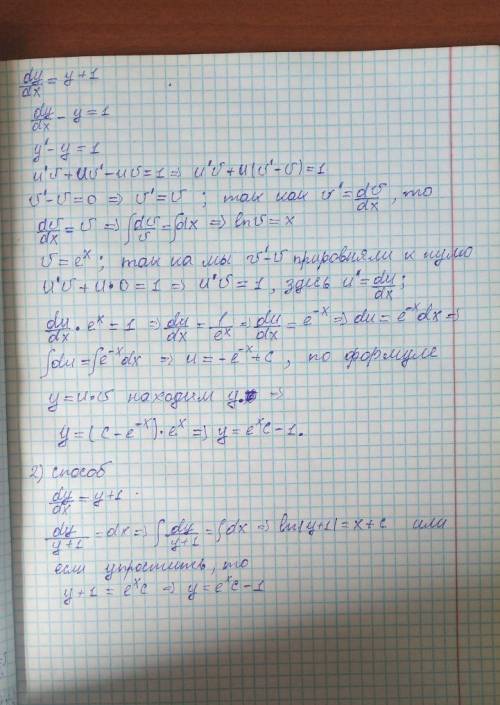 dy/dx = y+1
dy/dx - y = 1
y' - y = 1
u'v + uv' - uv = 1 ⇒ u'v + u(v' - v) = 1
v' - v = 0 ⇒ v' = v ; так как v' = dv/dx, то
dv/dx = v ⇒ ∫dv/v = ∫dx ⇒ lnv = x
v = eˣ ; так ка мы v' - v прировняли к нулю
u'v + u·0 = 1 ⇒ u'v = 1, здесь u' = du/dx ;
du/dx · eˣ = 1 ⇒ du/dx = 1/eˣ ⇒ du/dx = e⁻ˣ ⇒ du = e⁻ˣdx ⇒
∫du = ∫e⁻ˣdx ⇒ u = -e⁻ˣ + c , по формуле
y = u·v находим y. ⇒
y = (c - e⁻ˣ)·eˣ ⇒ y = eˣc - 1.
2) способ
dy/dx = y+1.
dy/y+1 = dx ⇒ ∫dy/y+1 = ∫dx ⇒ ln|y+1| = x+c или
если упростить, то
y+1 = eˣc ⇒ y = eˣc - 1